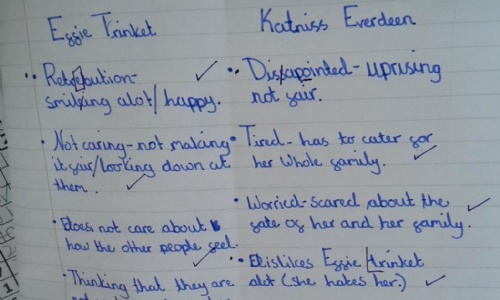 Effie Trinket
Retribution-
smiling alot/happy.
Not caring-not making
it fair/looking down at
them.
Does not care about
how the other people feel.
Thinking that they are
Katniss Everdeen
Disappointed-uprising
not fair.
Tired-has to cater for
her whole family.
Worried-scared about the
fate of her and her family.
Dislikes Effie trinket
alot (she hates her.)